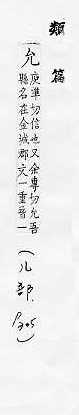 類篇
允 庾準切信也又余專切允吾
縣名在金城郡文一重音一
(儿部, P.305)